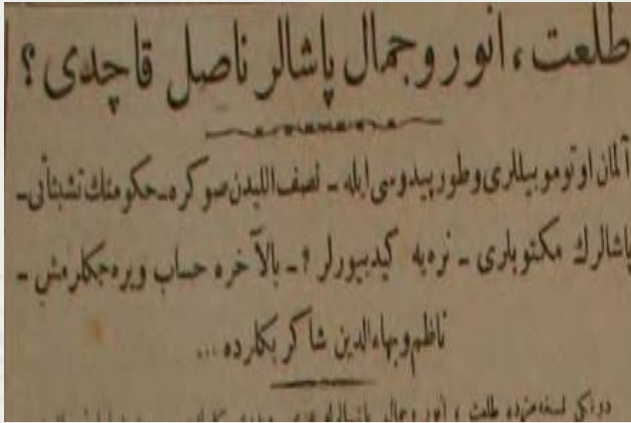 طلعت، انور و جمال پاشالر ناصل قاچدی؟
آلمان اوتوموبیللری و طورپیدوسی ایله ـ نصف اللیدن صوكره ـ حكومتك تشبثاتی ـ
پاشالرك مكتوبلری ـ نره‌یه كیدییورلر؟ ـ بالآخره حساب ویره‌جكلرمش ـ
ناظم و بهاءالدین شاكر بكلرده...
دونكی نسخه‌مزده طلعت، انور و جمال